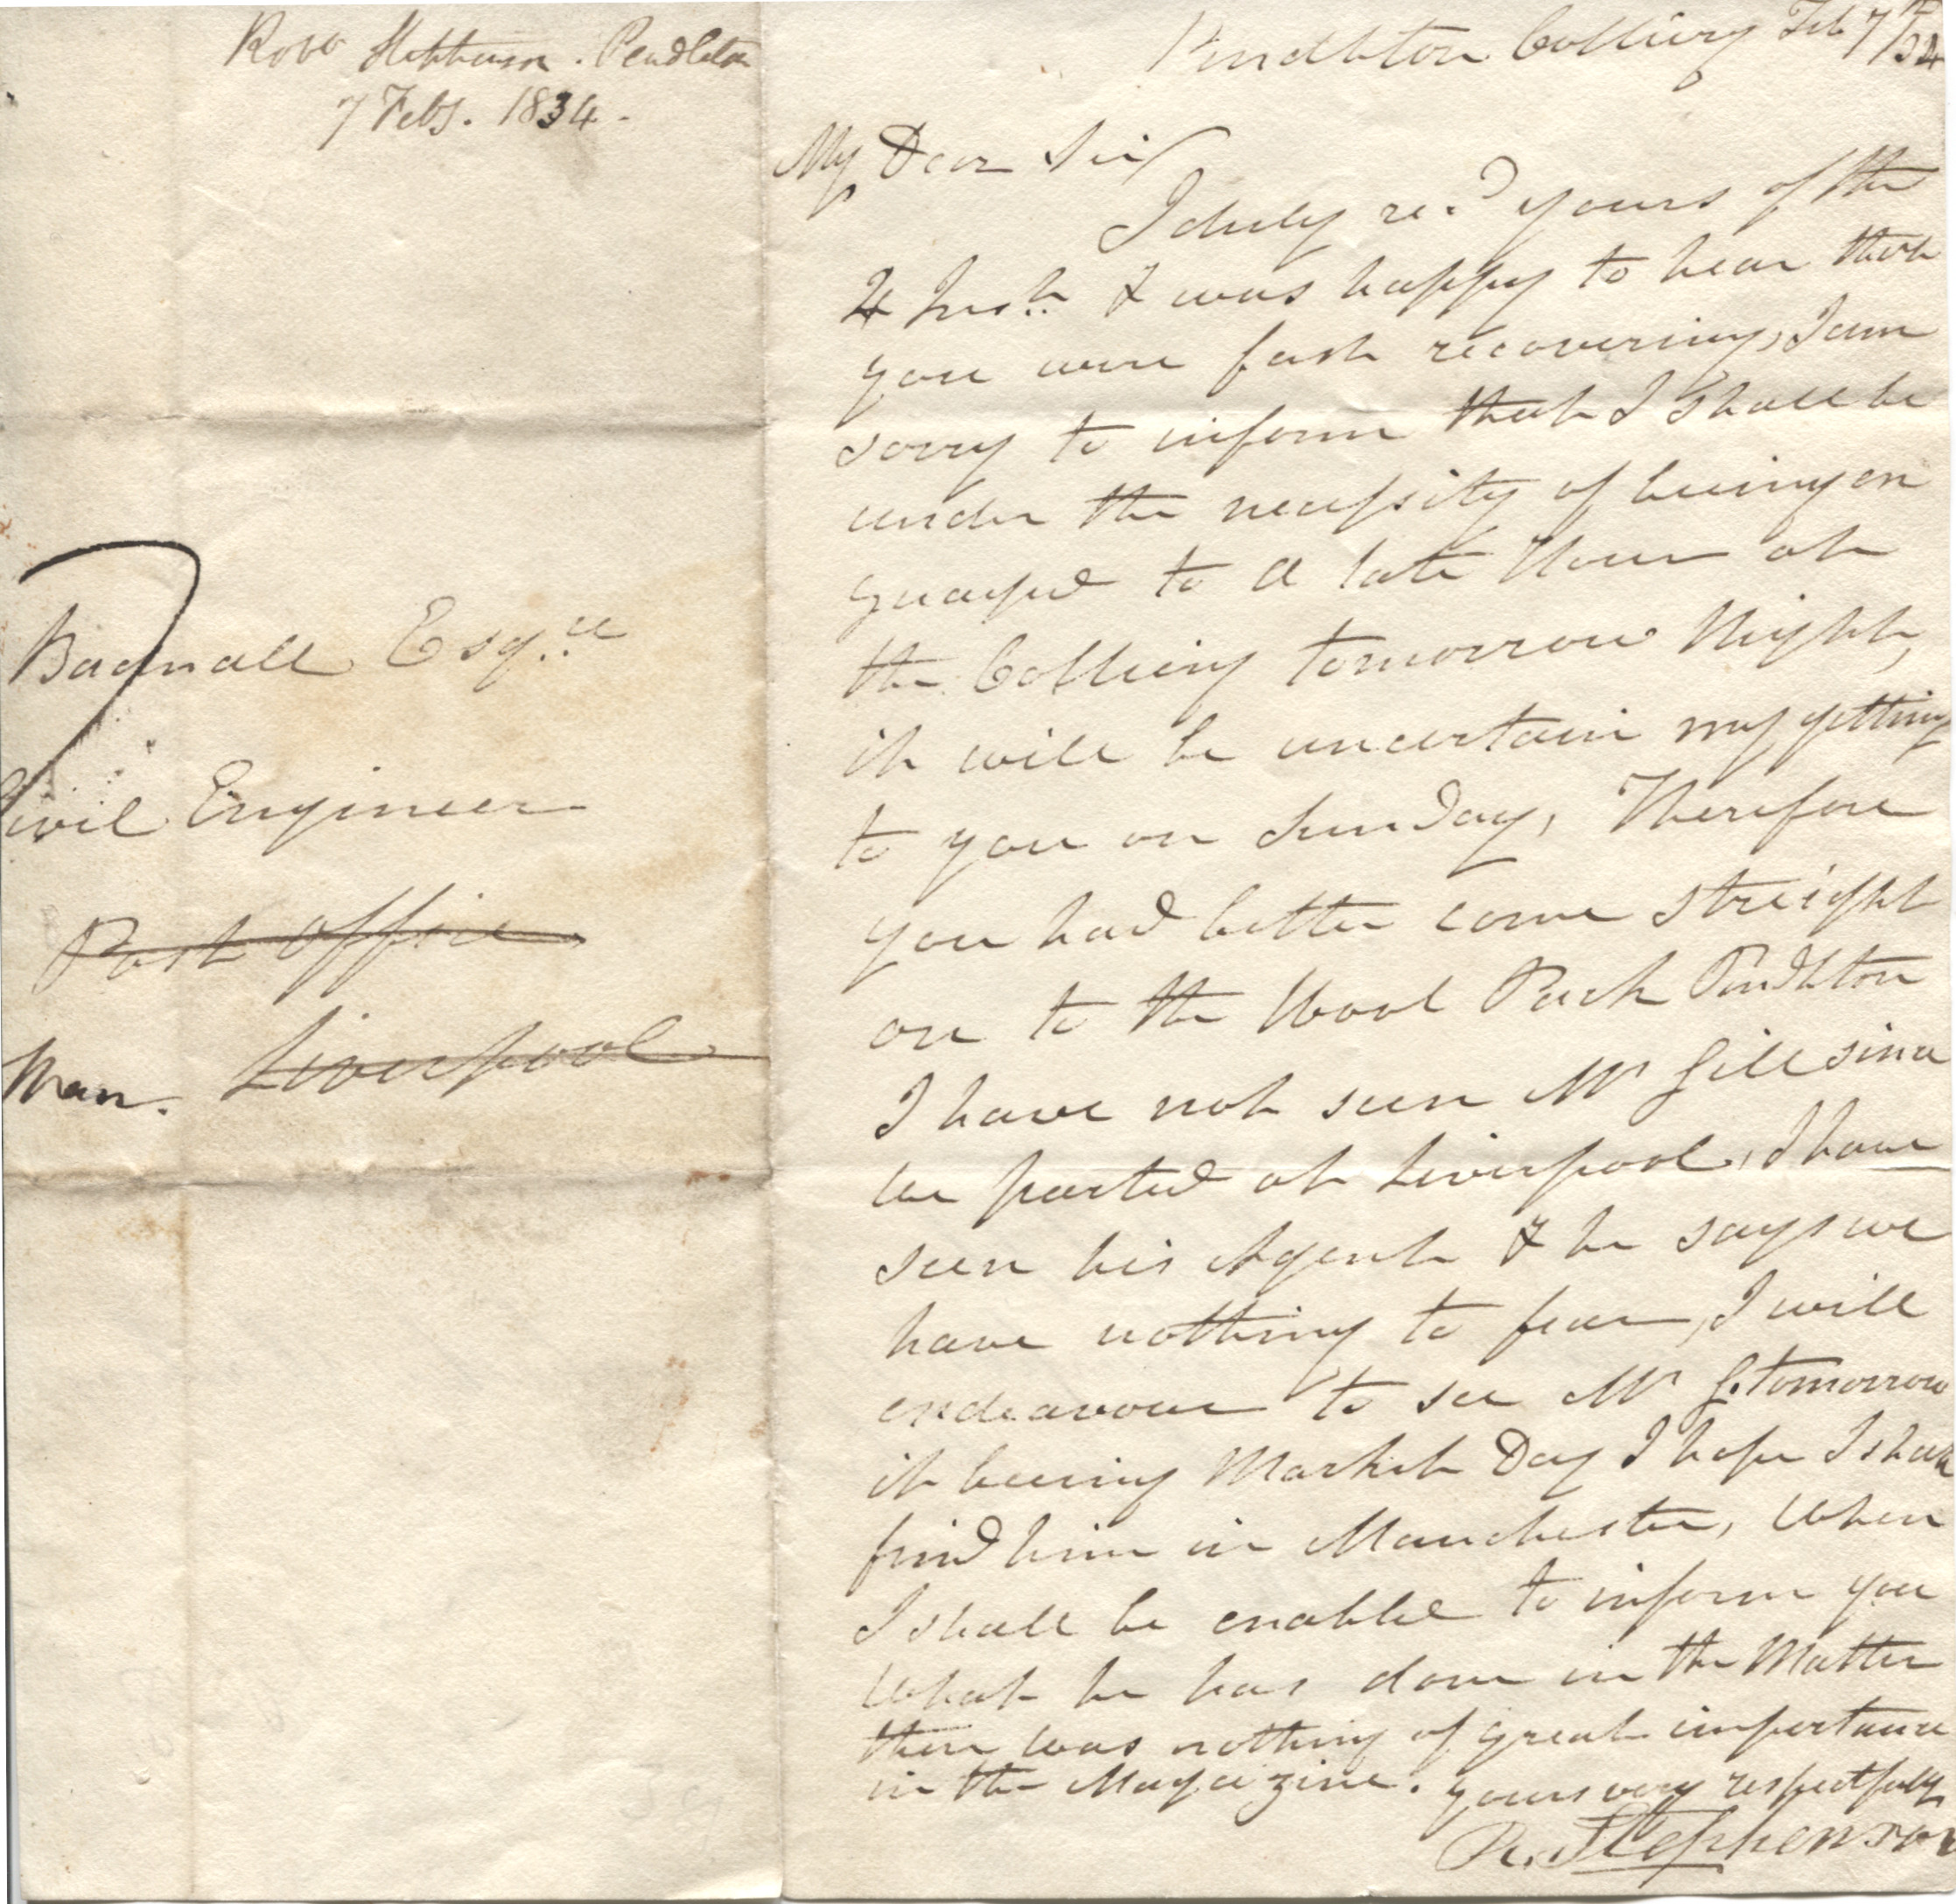 Robt Stephenson. Pendleton
7 Feby. 1834.
Bagnall Esqre
Civil Engineer
Post Office
Man. Liverpool
Pendleton Colliery Feb 7th/34
My Dear Sir
I duly recd yours of the
4 Inst & was happy to hear that
you were fast recovering, I am
sorry to inform that I shall be
under the necessity of being en
guaged to a late Hour at
the Colliery tomorrow Night,
it will be uncertain my getting
to you on Sunday, Therefore
you had better come streight
on to the Wool Pack Pendleton
I have not seen Mr Gill since
we parted at Liverpool, I have
seen his Agent & he says we
have nothing to fear, I will
endeavour to see Mr G. tomorrow
it being Market Day I hope I shall
find him in Manchester, When
I shall be enabled to inform you
What he has done in the Matter
there was nothing of great importance
in the Magazine. yours very respectfully
R. Stephenson